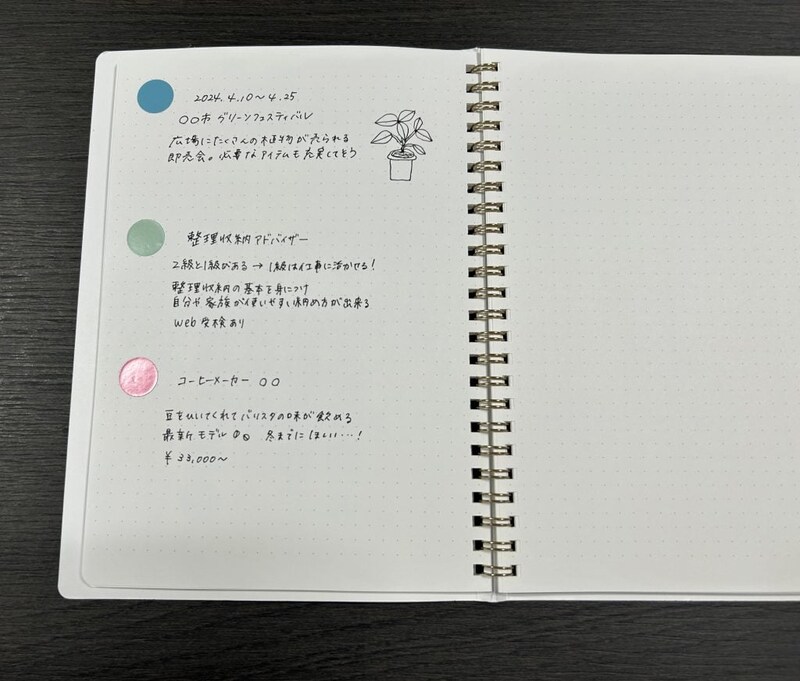 2024.4.10〜4.25
〇〇市 グリーンフェスティバル
広場にたくさんの植物が売られる
即売会。必要なアイテムも充実してそう
整理収納アドバイザー
2級と1級がある → 1級は仕事に活かせる!
整理収納の基本を身につけ
自分や家族が使いやすい納め方が出来る
Web受検あり
コーヒーメーカー 〇〇
豆をひいてくれてバリスタの味が楽める
最新モデル 冬までにほしい…!
¥33,000〜